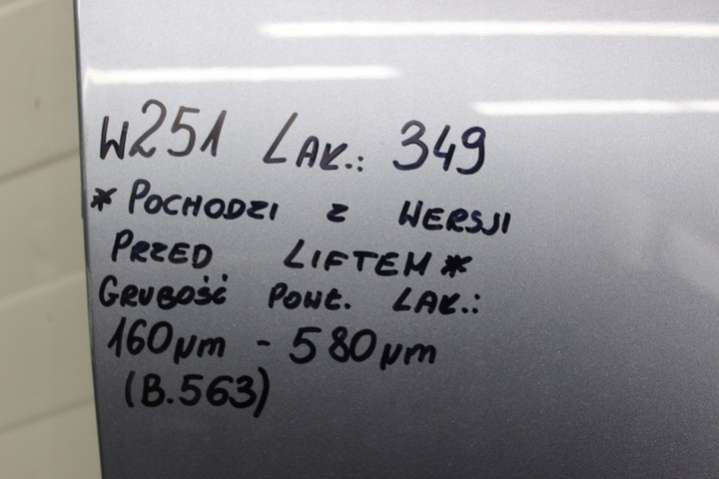 W251 LAK.: 349
* POCHODZI Z WERSJI
PRZED LIFTEM *
GRUBOŚĆ POWŁ. LAK.:
160µm - 580µm
(B.563)